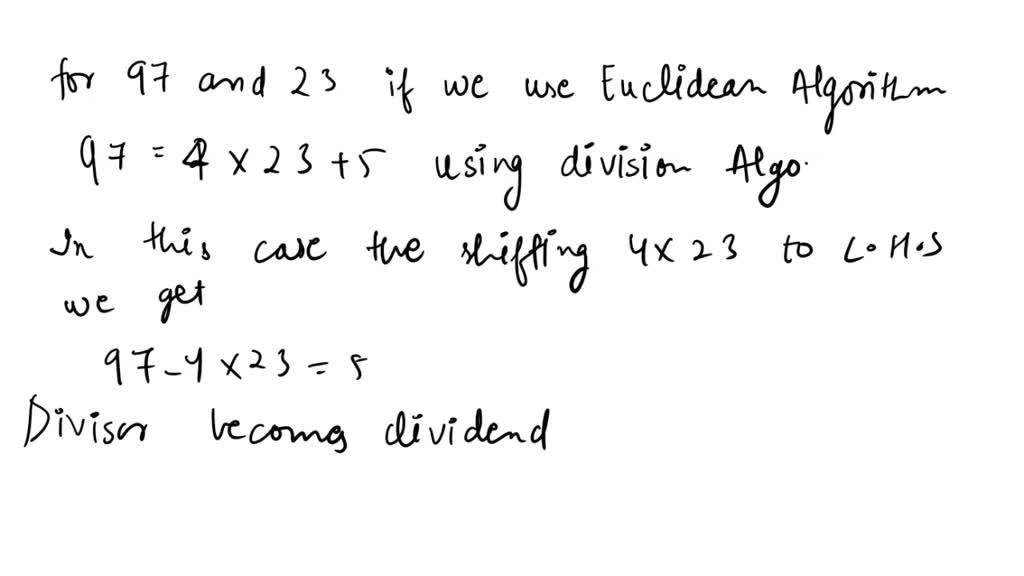 for 97 and 23 if we use Euclidean Algorithm
97 = 4 × 23 + 5 using division Algo.
In this case the shifting 4 × 23 to L.H.S
we get
97 - 4 × 23 = 5
Divisor becomes dividend